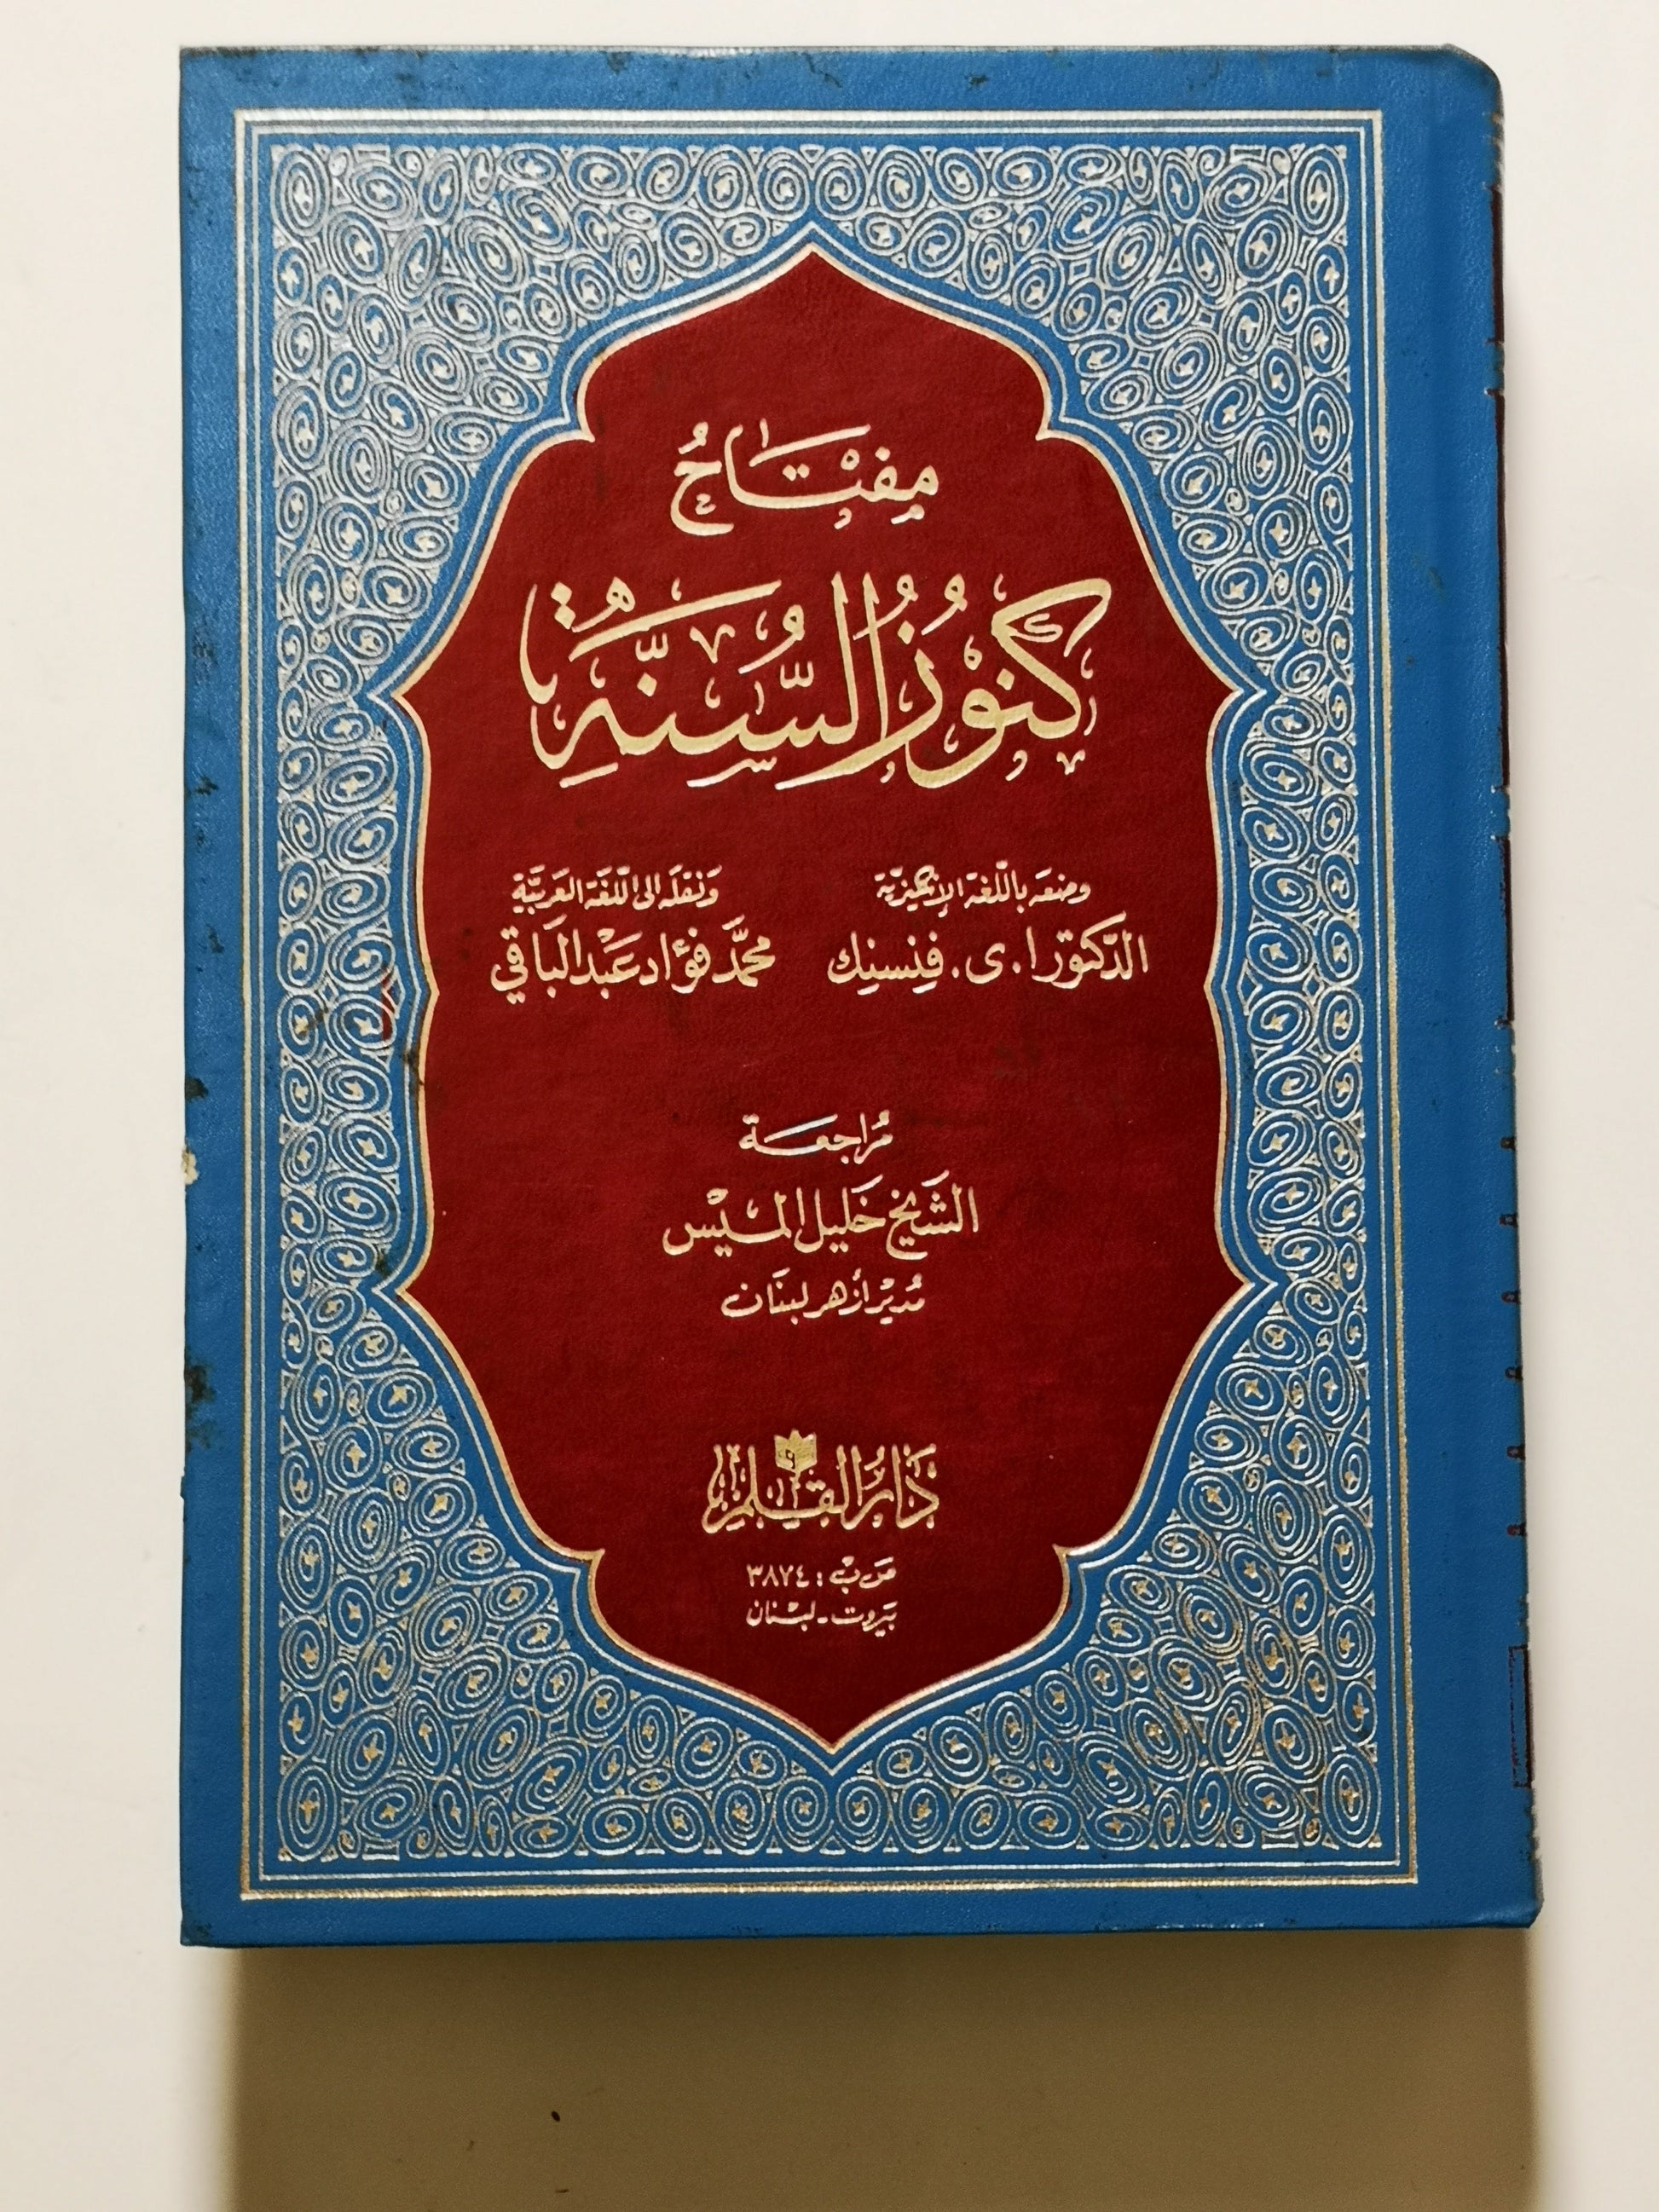 مِفْتَاحُ
كُنُوزُ السُّنَّةِ
وضعَه باللّغة الإنجليزيّة
الدّكتور ا. ى. فِنسِنِك
وَنقلَه الى اللّغَة العَربيَّة
محمَّد فؤاد عَبْد البَاقي
مُراجعَة
الشَيخ خَليل الميْس
مُديْر أزهَر لبنَان
دَارُ القَلم
ص.ب : ٣٨٧٤
بَيروت - لبْنان